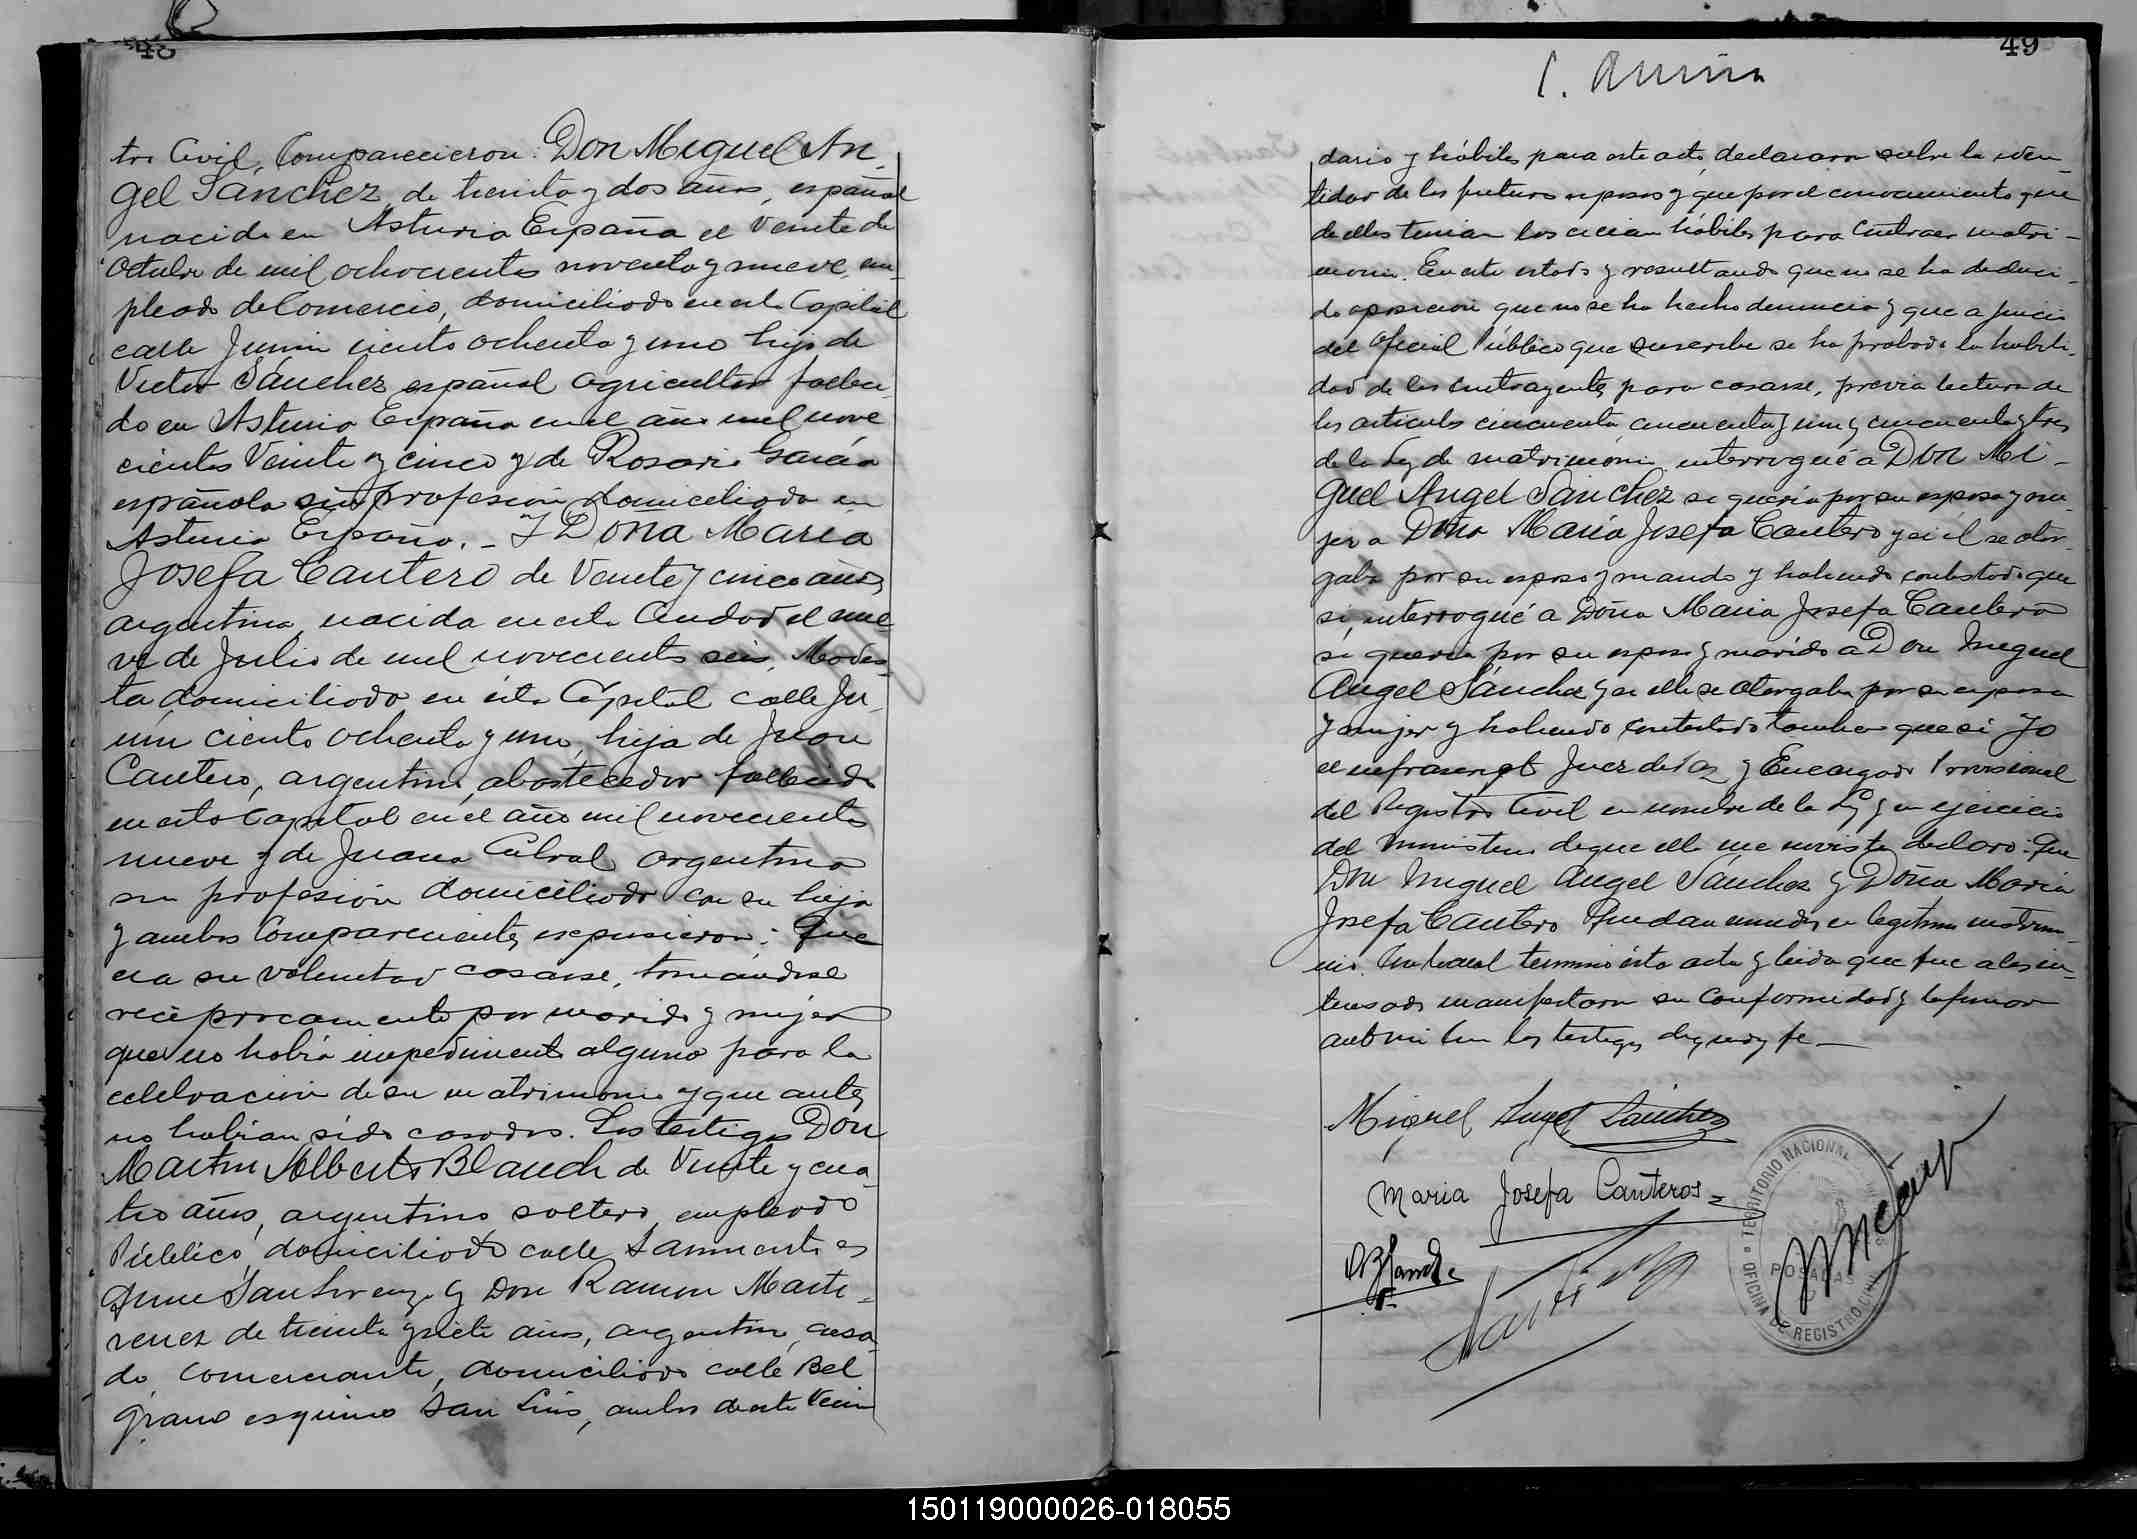 48
tro Civil, Comparecieron: Don Miguel An-
gel Sánchez, de treinta y dos años, español
nacido en Asturia España el veinte de
Octubre de mil ochocientos noventa y nueve, em-
pleado de Comercio, domiciliado en esta Capital
calle Junin ciento ochenta y uno hijo de
Victor Sánchez, español agricultor falleci-
do en Asturia España en el año mil nove
cientos Veinte y cinco y de Rosario García
española sin profesión domiciliada en
Asturia España. - Y Doña María
Josefa Cantero de Veinte y cinco años,
argentina, nacida en esta Ciudad el nue-
ve de Julio de mil novecientos seis, Modis-
ta, domiciliada en ésta Cápital calle Ju-
nin ciento ochenta y uno, hija de Juan
Cantero, argentino, abastecedor fallecido
en esta Capital en el año mil novecientos
nueve y de Juana Cabral, argentina
sin profesión domiciliada con su hija
y ambos Comparecientes expusieron: Que
era su voluntad casarse, tomandose
reciprocamente por marido y mujer
que no había impedimento alguno para la
celebracion de su matrimonio y que antes
no habian sido casados. Los testigos Don
Martin Alberto Blanch de Veinte y cua-
tro años, argentino, soltero, empleado
Público, domiciliado calle Sarmiento es
quina San Lorenzo y Don Ramon Marti-
renez de treinta y siete años, argentino, casa-
do, comerciante, domiciliado calle Bel
grano esquina San Luis, ambos de este Vecin
49
dario y hábiles para este acto, declararon sobre la iden-
tidad de los futuros esposos y que por el conocimiento que
de ellos tenian los creian hábiles para Contraer matri-
monio. En este estado y resultando que no se ha deduci-
do oposicion que no se ha hecho denuncia y que a juicio
del Oficial Público que suscribe se ha probado la habili-
dad de los contrayentes para casarse, previa lectura de
los articulos cincuenta, cincuenta y uno y cincuenta y tres
de la Ley de matrimonio, interrogué a Don Mi-
guel Angel Sánchez si queria por su esposa y mu-
jer a Doña María Josefa Cantero y si el se otor-
gaba por su esposo y marido y habiendo contestado que
si, interrogué a Doña Maria Josefa Cantero
si queria por su esposo y marido a Don Miguel
Angel Sánchez y si ella se otorgaba por su esposa
y mujer y habiendo contestado tambien que si Yo
el infrascript Juez de Paz y Encargado Provisional
del Registro Civil en nombre de la Ley y en ejercicio
del ministerio de que ella me inviste, declaro: Que
Don Miguel Angel Sánchez y Doña María
Josefa Cantero Quedan unidos en legitimo matrimo-
nio. Con lo cual terminó ésta acta y leida que fue a los in-
teresados manifestaron su Conformidad y la firman
ante mi con los testigos, de que doy fe -
Miguel Angel Sánchez
Maria Josefa Canteros
Blanch
TERRITORIO NACIONAL
POSADAS
OFICINA DE REGISTRO CIVIL
150119000026-018055